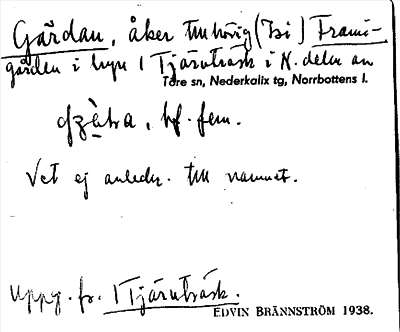 Gårdan, åker tillhörig (Isi) Frami-
gården i byn i Tjärnträsk i N. delen av
Töre sn, Nederkalix tg, Norrbottens l.
bf. fem.
Vet ej anledn. till namnet.
Uppg. fr. i Tjärnträsk.
EDVIN BRÄNNSTRÖM 1938.